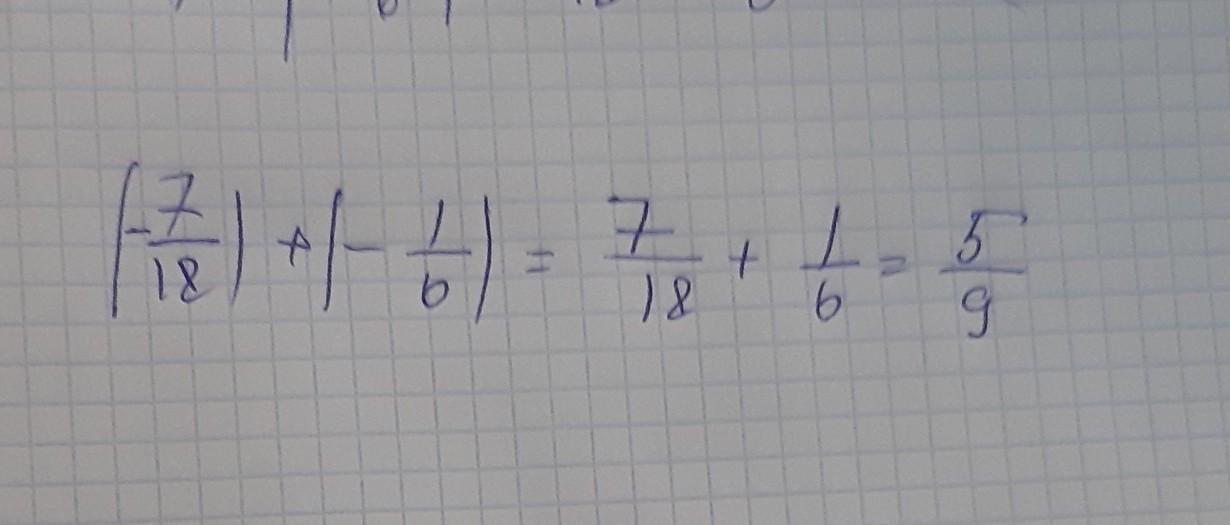 |-7/18| + |-1/6| = 7/18 + 1/6 = 5/9